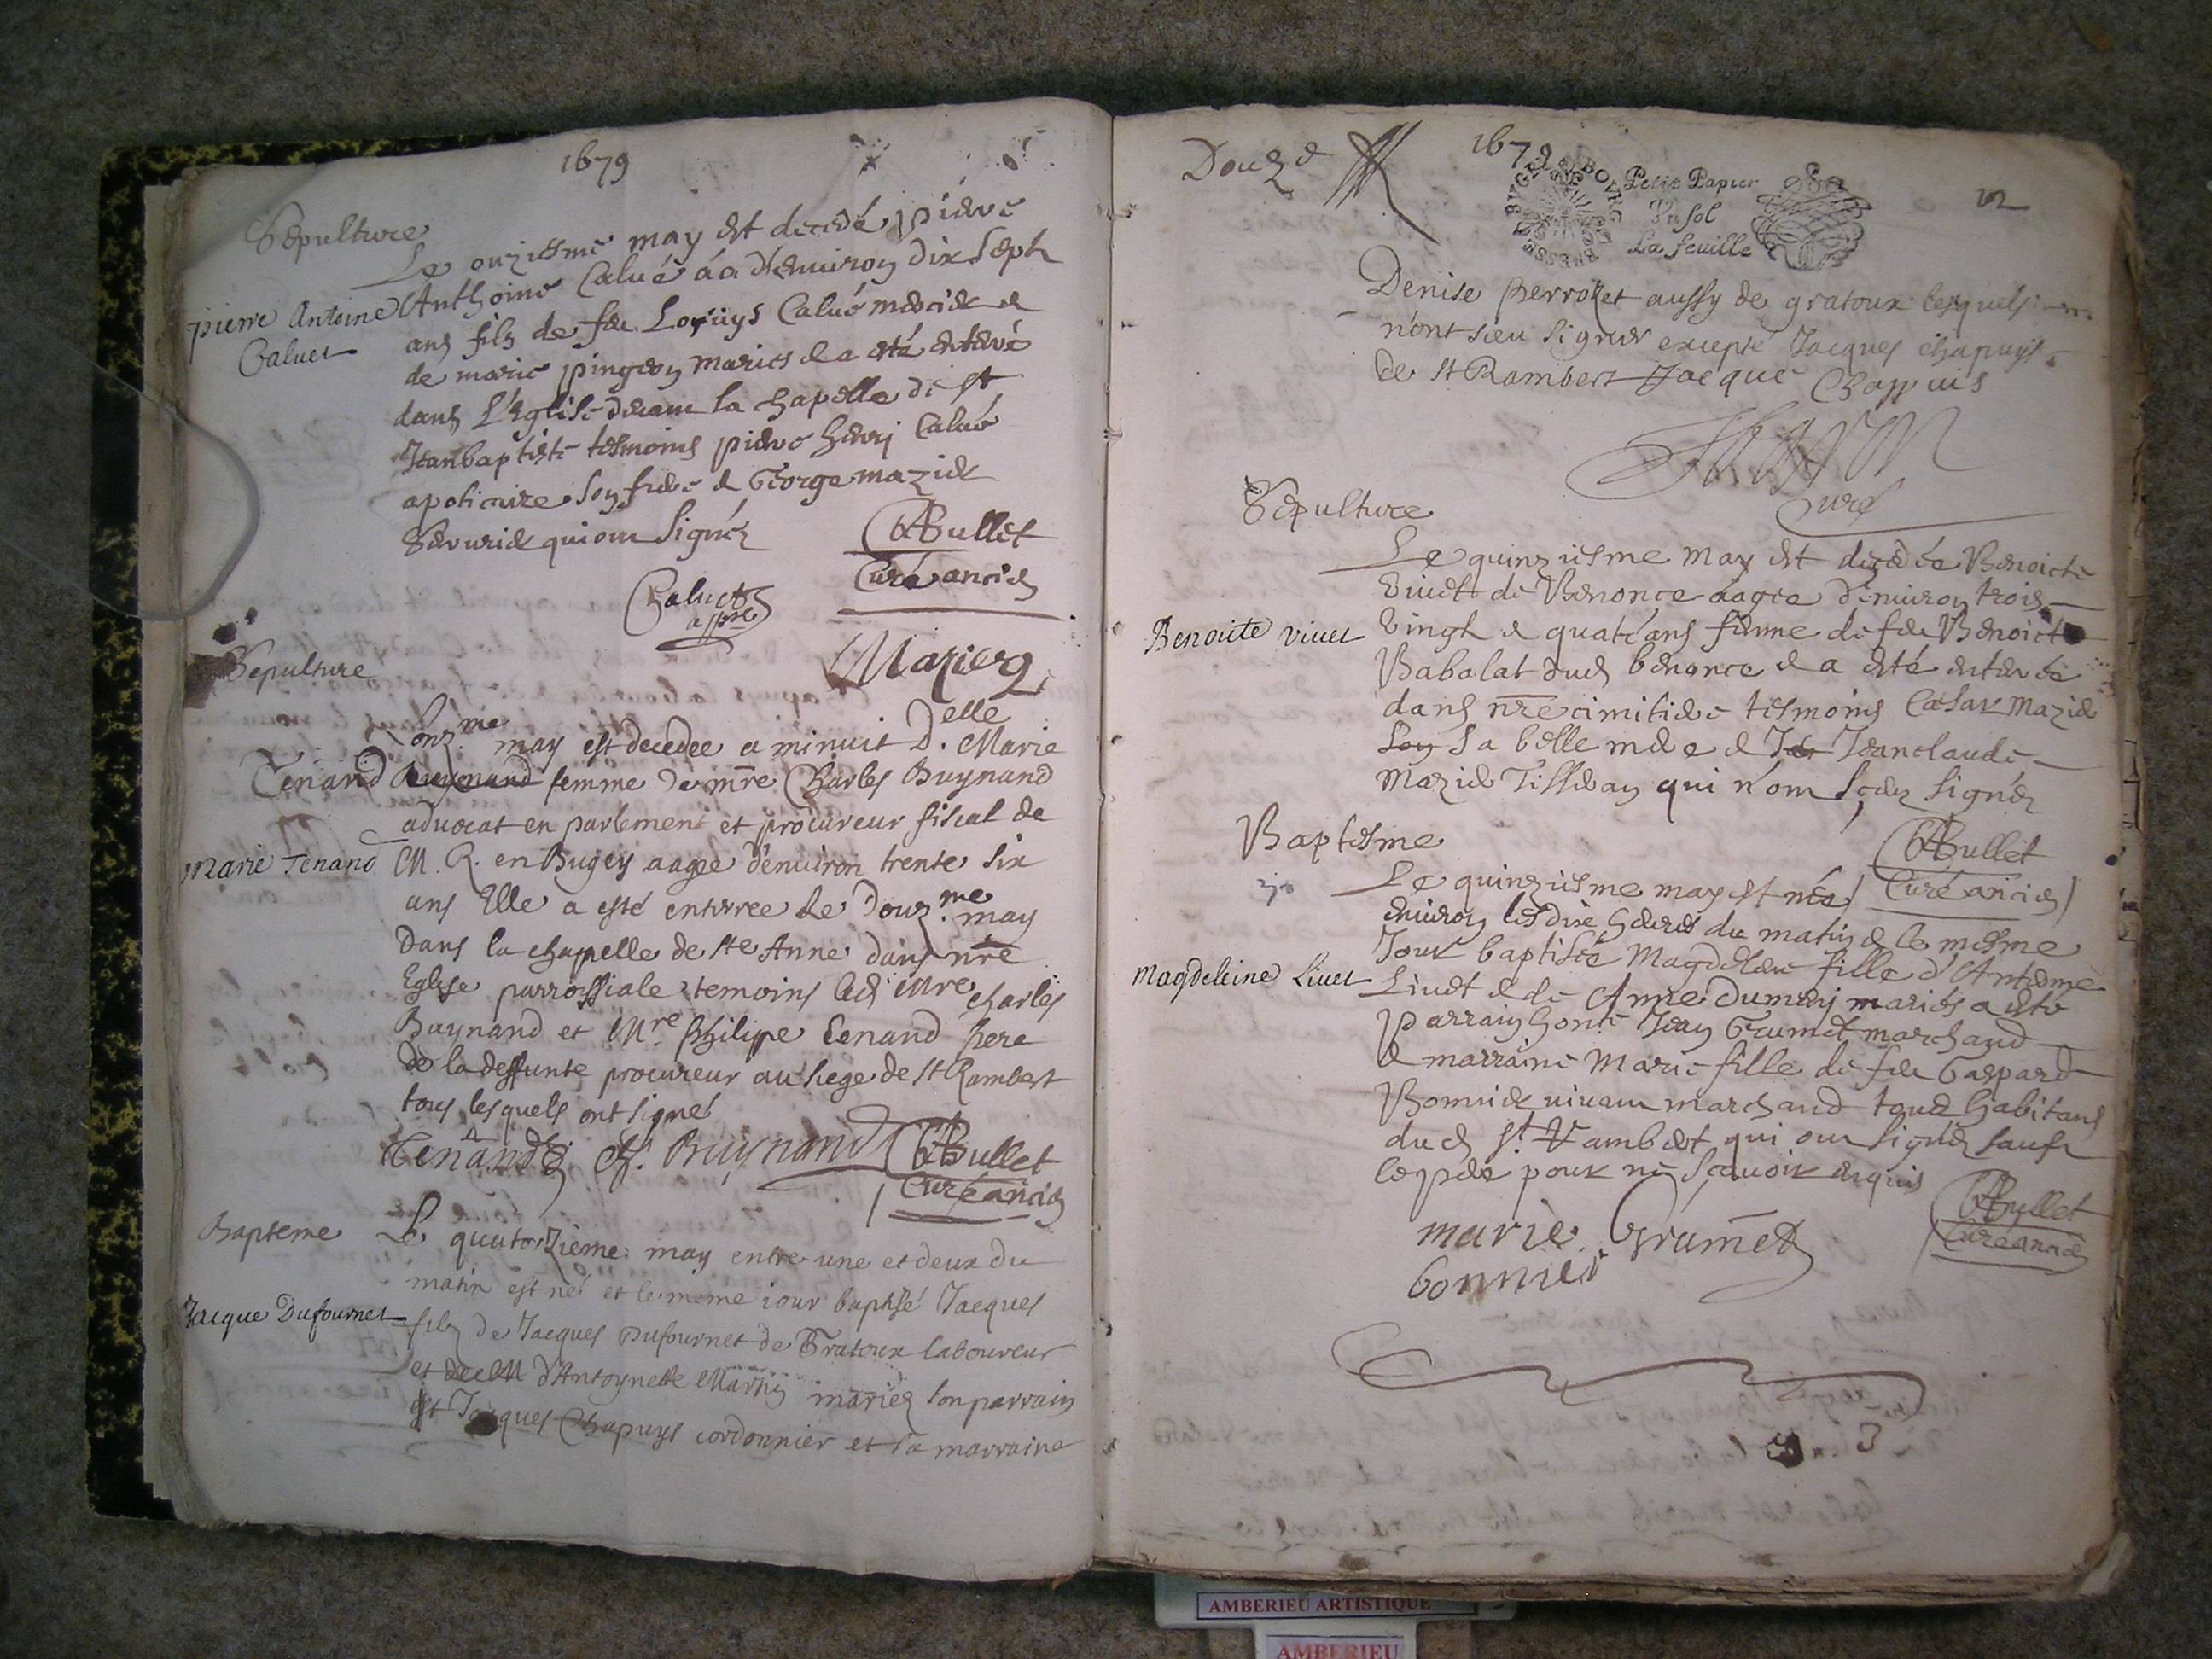 1679
Sepulture
Le onziesme may est decedé pierre
pierre Antoine
Caluet
Anthoine Calué áa d'enuiron dix sept
ans fils de feu Louys Calué médecin et
de marie pingeon mariés et a esté enterré
dans l'Eglise deuant la chapelle de st
Jeanbaptiste tesmoins pierre henri Calué
apoticaire son frere et George mazier
Serrurier qui ont signéz
ABullet
Curé ancien
Caluet
appre
Mazier
Sepulture
L'onz.me may est decedee a minuit D.elle Marie
Tenand femme de mre Charles Buynand
aduocat en parlement et procureur fiscal de
Marie Tenand
M. R. en Bugey aagee d'enuiron trente six
ans Elle a esté enterree Le Douz.me may
Dans la chapelle de ste Anne dans nre
Eglise parrossiale temoins led Mre charles
Buynand et Mr.e Philipe Tenand Pere
de la deffunte procureur au siege de St Rambert
tous lesquels ont signé
Tenand C. Buynand ABullet
Curé ancien
Bapteme
Le quatorzieme may entre une et deux du
matin est né et le méme iour baptisé Jacques
Jacque Dufournet
fils de Jacques Dufournet de Gratoux laboureur
et d'Antoynette Martin mariez son parrain
est Jacques Chapuys cordonnier et sa marraine
Douze
1679
BUGEY BOURG BRESSE
Petit Papier
Un sol
La feuille
12
Denise perrozet aussy de gratoux lesquels
n'ont sceu signer excepté Jacques chapuys
de st Rambert Jacque Chappuis
Curé
Sepulture
Le quinziesme may est decedée Benoicte
Viuet de Benonce áagée d'enuiron trois
Benoite viuet
Vingt et quatre ans femme de feu Benoict
Babolat dud benonce et a esté enterrée
dans nre cimitiere tesmoins Cæsar Mazier
son sa belle mere et Jeanclaude
Mazier Tisseran qui n'ont sceu signéz
ABullet
Curé ancien
Baptesme
Le quinziesme may est née
enuiron les dix heures du matin et le mesme
Jour baptisée Magdeleine fille d'Anteome
Magdeleine Liuet
Liuet et de Anne Dumarj mariés a esté
parrain honte Jean Grumet marchand
et marraine Marie fille de feu Gaspard
Bonnier viuant marchand tous habitans
dud st Rambert qui ont signéz sauf
le pere pour ne scauoir enquis
ABullet
Curé ancien
marie Grumet
bonnier
AMBERIEU ARTISTIQUE
AMBERIEU